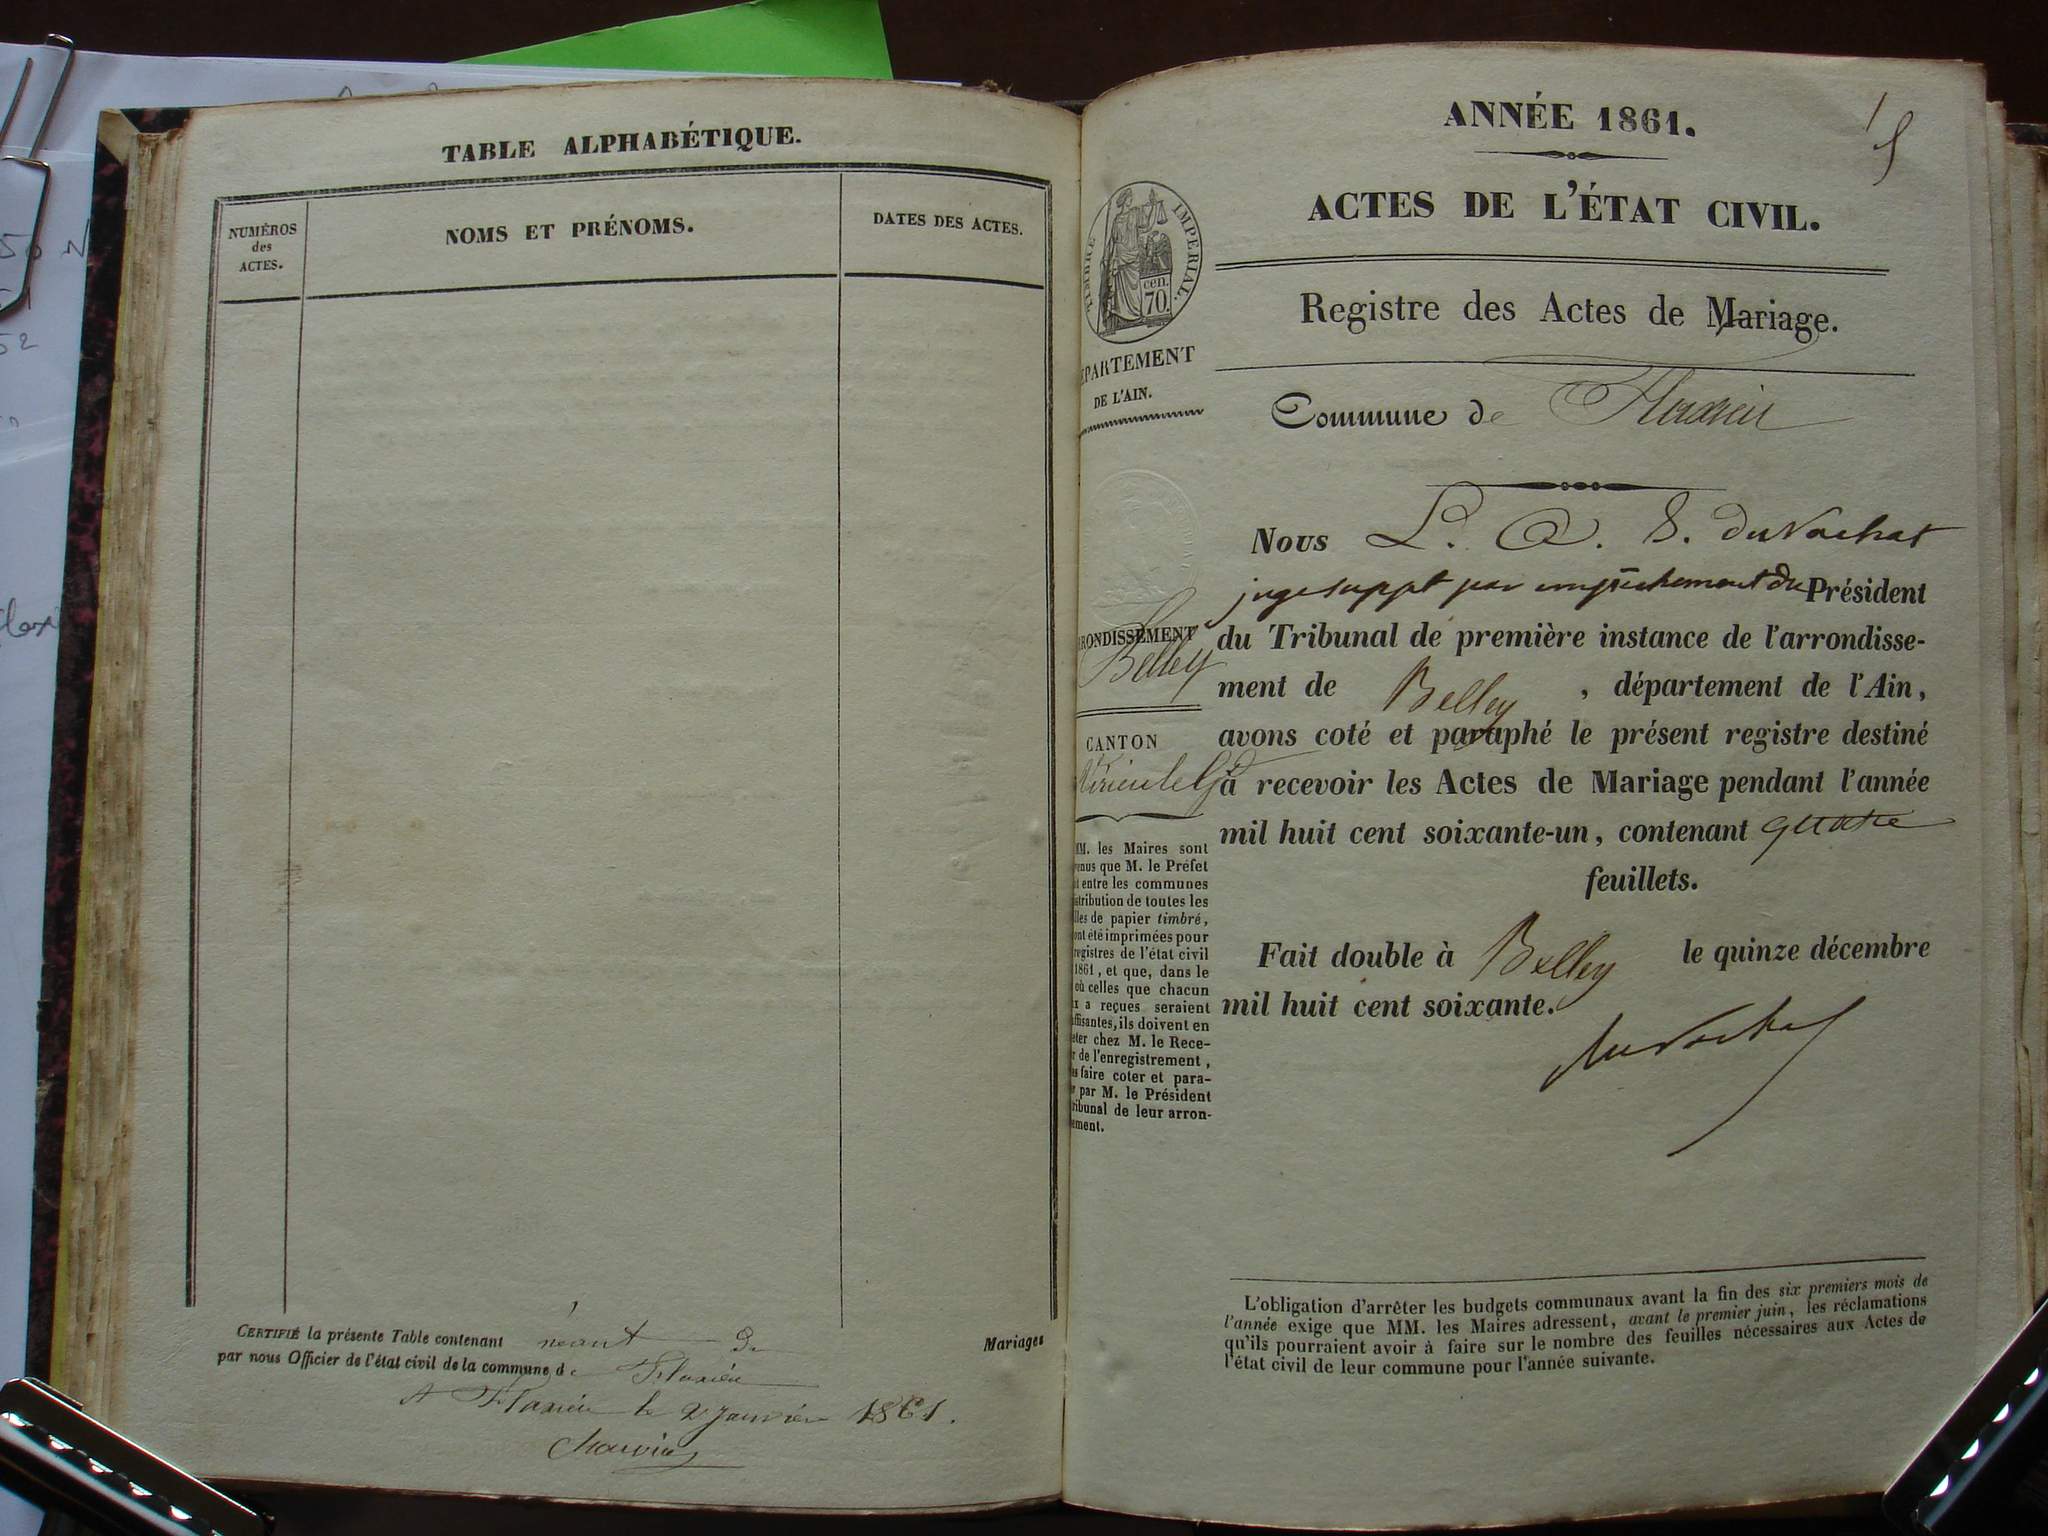 TABLE ALPHABÉTIQUE.
NUMÉROS
des
ACTES.
NOMS ET PRÉNOMS.
DATES DES ACTES.
CERTIFIÉ la présente Table contenant néant de Mariages
par nous Officier de l'état civil de la commune de Flaxieu
A Flaxieu le 2 janvier 1861.
ANNÉE 1861.
ACTES DE L'ÉTAT CIVIL.
TIMBRE IMPERIAL.
cen.
70.
Registre des Actes de Mariage.
EPARTEMENT
DE L'AIN.
Commune de Flaxieu
Nous L. A. duVachat
juge suppt par empêchement du Président
RONDISSEMENT
Belley
du Tribunal de première instance de l'arrondisse-
ment de Belley, département de l'Ain,
CANTON
Virieu le Gd
avons coté et paraphé le présent registre destiné
à recevoir les Actes de Mariage pendant l'année
mil huit cent soixante-un, contenant quatre
feuillets.
Fait double à Belley le quinze décembre
mil huit cent soixante.
duVachat
MM. les Maires sont
venus que M. le Préfet
it entre les communes
istribution de toutes les
lles de papier timbré,
ont été imprimées pour
registres de l'état civil
1861, et que, dans le
où celles que chacun
x a reçues seraient
ffisantes, ils doivent en
eter chez M. le Rece-
r de l'enregistrement,
es faire coter et para-
r par M. le Président
ribunal de leur arron-
ement.
L'obligation d'arrêter les budgets communaux avant la fin des six premiers mois de
l'année exige que MM. les Maires adressent, avant le premier juin, les réclamations
qu'ils pourraient avoir à faire sur le nombre des feuilles nécessaires aux Actes de
l'état civil de leur commune pour l'année suivante.